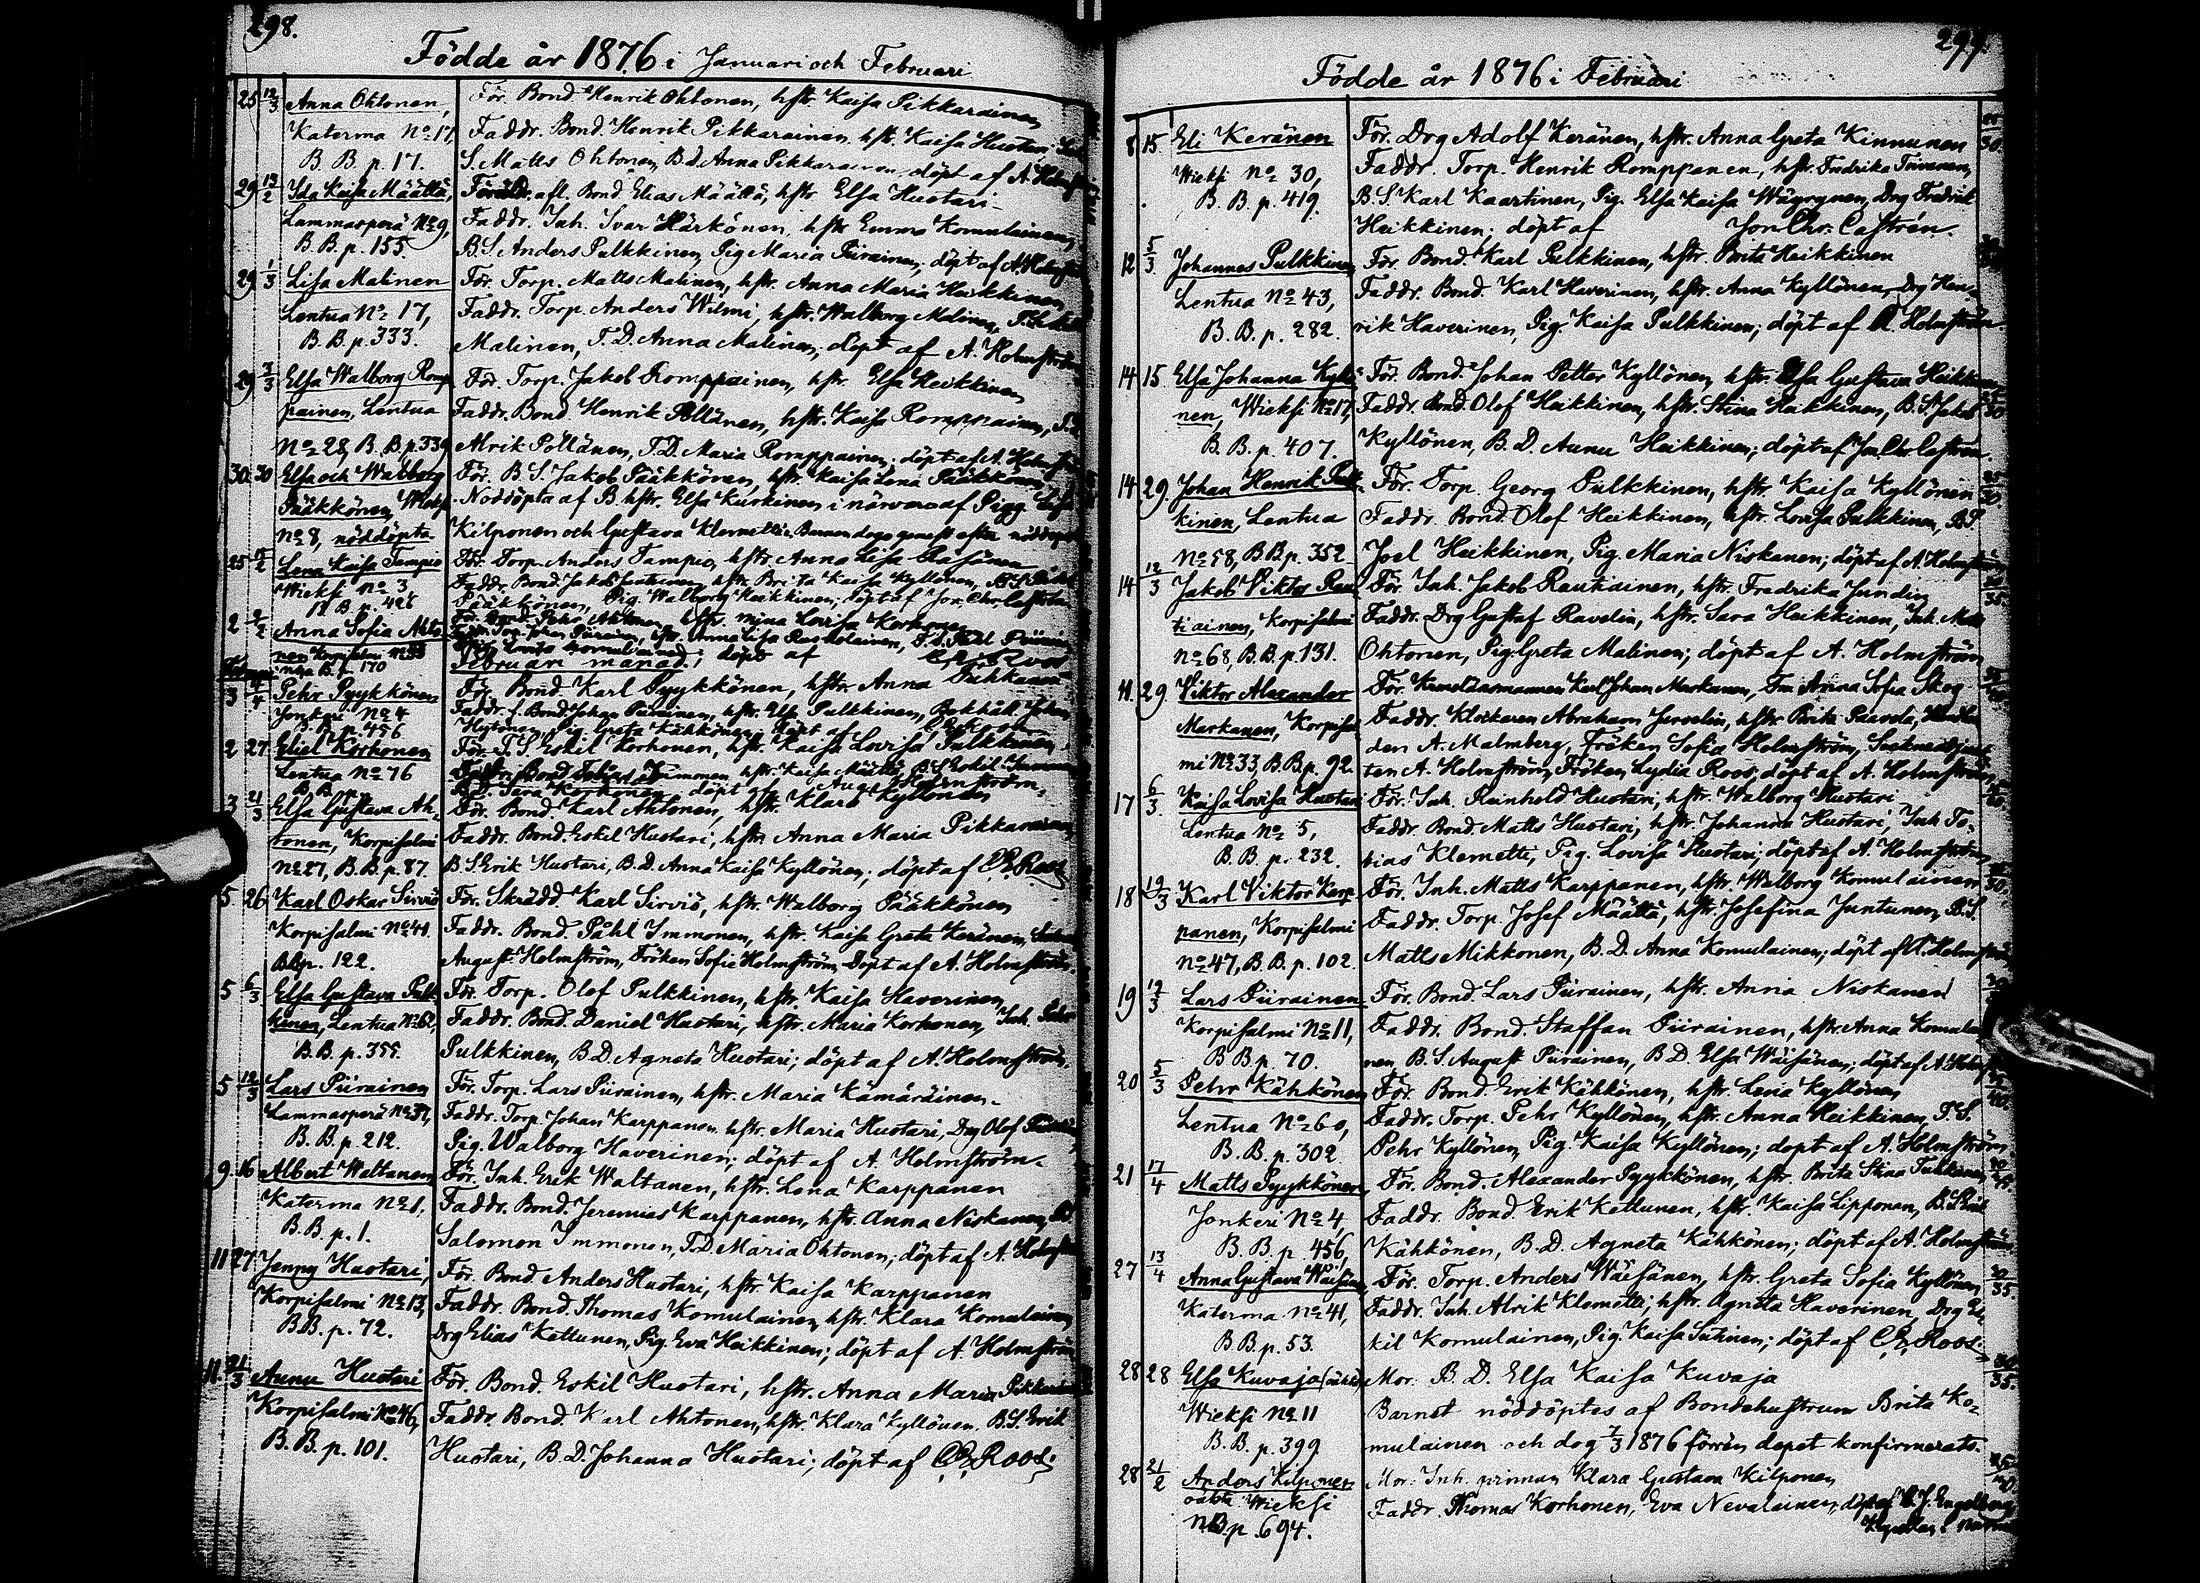 298.
Födde år 1876 i Januari och Februari
25 12/3 Anna Ohtonen, För. Bond Henrik Ohtonen, hstr. Kaisa Pikkarainen
Katerma No 17, Faddr. Bond. Henrik Pikkarainen, hstr. Kaisa Huotari,
B. B. p. 17. S. Matts Ohtonen, B.d. Anna Pikkarainen, döpt af A. Holmström
29 13/2 Ida Kaisa Määttä, Föräldr. afl. Bond Elias Määttä, hstr Elsa Huotari
Lammasperä No 9, Faddr. Inh. Ivar Härkönen, hstr Emma Komulainen,
B. B. p. 155. B.S. Anders Pulkkinen, Pig Maria Piirainen; döpt af A. Holmström
29 1/3 Lisa Malinen För. Torp. Matts Malinen, hstr. Anna Maria Heikkinen
Lentua No 17, Faddr. Torp. Anders Wilmi, hstr. Walborg Malinen,
B. B. p. 333. Malinen, T.D. Anna Malinen, döpt af A. Holmström
29 3/3 Elsa Walborg Romp- För. Torp. Jakob Romppainen, hstr. Elsa Heikkinen
painen, Lentua Faddr. Bond. Henrik Pöllänen, hstr. Kaisa Romppainen,
No 28, B. B. p. 339 Alrik Pöllänen, T.D. Maria Romppainen; döpt af A. Holmström
30. 30 Elsa och Walborg För. B. S. Jakob Pääkkönen, hstr. Kaisa Lena Pääkkönen
Pääkkönen, Nöddöpta af B. hstr. Elsa Kurkinen i närvaro af Pigg Lisa
No 8, nöddöpta Kilponen och Gustava Klemetti. Barnen dogo genast efter nöddopet
25 Lena Kaisa Tampio För. Torp. Anders Tampio, hstr. Anna Lisa
Wieksi No 3 Faddr. Bond. Jakob hstr Brita Kaisa Kyllönen,
Pääkkönen, Pig. Walborg Heikkinen; döpt af Jon. Chr. Castrén
2 Anna Sofia Ahto- För. Bond. Pehr Ahtonen, hstr. Lovisa Korhonen
nen Korpisalmi
170 Februari månad; döpt af
3 4/4 Pehr Pyykkönen För. Bond Karl Pyykkönen, hstr. Anna
Jonkeri No 4 Faddr. f. Bond Johan Piirainen, hstr. Elsa Pulkkinen,
B. B. p. 456 Pig. Greta Kähkönen
2 27. Eliel Korhonen För. T. S. Eskil Korhonen, hstr. Kaisa Lovisa Pulkkinen
Lentua No 76 Faddr. Bond Tobias Immonen, hstr. Kaisa Määttä, B. S. Eskil
B. B. p. B.D. Sara Korhonen; döpt af Aug. Holmström.
3 21/3 Elsa Gustava Ah- För. Bond. Karl Ahtonen, hstr. Klara Kyllönen
tonen, Korpisalmi Faddr. Bond. Eskil Huotari, hstr. Anna Maria Pikkarainen,
No 27, B. B. p. 87. B. S. Erik Huotari, B.D. Anna Kaisa Kyllönen; döpt af Roos
5 26 Karl Oskar Sirviö För. Skrädd. Karl Sirviö, hstr. Walborg Pääkkönen
Korpisalmi No 41. Faddr. Bond. Påhl Immonen, hstr. Kaisa Greta Keränen,
B.B.p. 122. August Holmström, Fröken Sofie Holmström, Döpt af A. Holmström.
5 6/3 Elsa Gustava Pulk- För. Torp. Olof Pulkkinen, hstr. Kaisa Haverinen
kinen, Lentua No 62, Faddr. Bond. Daniel Huotari, hstr. Maria Korhonen, Inh. Pehr
B. B. p. 355. Pulkkinen, B.D. Agneta Huotari; döpt af A. Holmström.
5 12/3 Lars Piirainen För. Torp. Lars Piirainen, hstr. Maria Kämäräinen.
Lammasperä No 37, Faddr. Torp. Johan Karppanen, hstr. Maria Huotari, Drg Olof
B. B. p. 212. Pig. Walborg Haverinen; döpt af A. Holmström.
9. 16 Albert Waltanen, För. Inh. Erik Waltanen, hstr. Lena Karppanen
Katerma No 1, Faddr. Bond. Jeremias Karppanen, hstr. Anna Niskanen,
B. B. p. 1. Salomon Immonen, T.D. Maria Ohtonen; döpt af A. Holmström
11 27. Jenny Huotari, För. Bond Anders Huotari, hstr. Kaisa Karppanen
Korpisalmi No 13, Faddr. Bond. Thomas Komulainen, hstr. Klara Komulainen,
B. B. p. 72. Drg Elias Kettunen, Pig. Eva Heikkinen; döpt af A. Holmström
11. 21/3 Aunu Huotari För. Bond. Eskil Huotari, hstr. Anna Maria Pikkarainen
Korpisalmi No 46, Faddr. Bond. Karl Ahtonen, hstr. Klara Kyllönen, B. S. Erik
B. B. p. 101. Huotari, B.D. Johanna Huotari; döpt af Roos.
299.
Födde år 1876 i Februari
8 15. Eli Keränen För. Drg Adolf Keränen, hstr. Anna Greta Kinnunen
Wieksi No 30, Faddr. Torp. Henrik Romppanen, hstr. Fredrika
B. B. p. 419. B.S. Karl Kaartinen, Pig. Elsa Kaisa Wäyrynen, Drg Fredrik
Heikkinen; döpt af Jon Chr. Castrén.
12 5/3 Johannes Pulkkinen För. Bond. Karl Pulkkinen, hstr. Brita Heikkinen
Lentua No 43, Faddr. Bond. Karl Haverinen, hstr. Anna Kyllönen, Drg Hen-
B. B. p. 282. rik Haverinen, Pig. Kaisa Pulkkinen; döpt af A. Holmström.
14 15 Elsa Johanna Kyllö- För. Bond. Johan Petter Kyllönen, hstr. Elsa Gustava Heikkinen
nen, Wieksi No 17, Faddr. Bond. Olof Heikkinen, hstr. Stina Heikkinen, B. S. Jakob
B. B. p. 407. Kyllönen, B. D. Aunu Heikkinen; döpt af Jon Chr Castrén.
14 29. Johan Henrik Pulk- För. Torp. Georg Pulkkinen, hstr. Kaisa Kyllönen
kinen, Lentua Faddr. Bond. Olof Heikkinen, hstr. Lovisa Pulkkinen, B.S.
No 58, B. B. p. 352 Joel Heikkinen, Pig. Maria Niskanen; döpt af A. Holmström
14 12/3 Jakob Viktor Rau- För. Inh. Jakob Rautiainen, hstr. Fredrika Jundin
tiainen, Korpisalmi Faddr. Drg Gustaf Ravelin, hstr. Sara Heikkinen, Inh. Matts
No 68, B. B. p. 131. Ohtonen, Pig. Greta Malinen; döpt af A. Holmström
11. 29. Viktor Alexander För. Karl Johan Markanen, Fru Anna Sofia Skog
Markanen, Korpisal- Faddr. Klockaren Abraham hstr Brita Paavola,
mi No 33, B. B. p. 92. den A. Malmberg, Fröken Sofia Holmström, Sockneadjunk-
ten A. Holmström, Fröken Lydia Roos; döpt af A. Holmström
17 6/3 Kaisa Lovisa Huotari För. Inh. Reinhold Huotari, hstr. Walborg Huotari
Lentua No 5, Faddr. Bond. Matts Huotari, hstr. Johanna Huotari, Inh To-
B. B. p. 232. bias Klemetti, Pig. Lovisa Huotari; döpt af A. Holmström
18 12/3 Karl Viktor Karp- För. Inh. Matts Karppanen, hstr. Walborg Komulainen
panen, Korpisalmi Faddr. Torp. Josef Määttä, hstr. Josefina Juntunen, B. S.
No 47, B. B. p. 102. Matts Mikkonen, B. D. Anna Komulainen; döpt af A. Holmström
19 12/3 Lars Piirainen För. Bond. Lars Piirainen, hstr. Anna Niskanen
Korpisalmi No 11, Faddr. Bond. Staffan Piirainen, hstr. Anna Komulai-
B. B. p. 70. nen, B. S. August Piirainen, B.D. Elsa Wäisänen; döpt af A. Holmström
20 5/3 Pehr Kähkönen För. Bond. Erik Kähkönen, hstr. Lena Kyllönen
Lentua No 60, Faddr. Torp. Pehr Kyllönen, hstr. Anna Heikkinen, T. S.
B. B. p. 302 Pehr Kyllönen, Pig. Kaisa Kyllönen; döpt af A. Holmström
21 17/4 Matts Pyykkönen, För. Bond. Alexander Pyykkönen, hstr. Brita Stina
Jonkeri No 4, Faddr. Bond. Erik Kettunen, hstr. Kaisa Lipponen,
B. B. p. 456, Kähkönen, B. D. Agneta Kähkönen; döpt af A. Holmström
27 13/4 Anna Gustava Wäisänen För. Torp. Anders Wäisänen, hstr. Greta Sofia Kyllönen,
Katerma No 41, Faddr. Inh. Alrik Klemetti, hstr. Agneta Haverinen, Drg Es-
B. B. p. 53. kil Komulainen, Pig. Kaisa Sutinen; döpt af Roos.
28 28 Elsa Kuvaja Mor. B. D. Elsa Kaisa Kuvaja
Wieksi No 11 Barnet nöddöptes af Bondehustrun Brita Ko-
B. B. p. 399 mulainen och dog 7/3 1876 förrän dopet konfirmerats.
28 21/2 Anders Kilponen Mor. Inh. Klara Gustava Kilponen
oäkta Wieksi Faddr. Thomas Korhonen, Eva Nevalainen; döpt af
NB. p. 694.